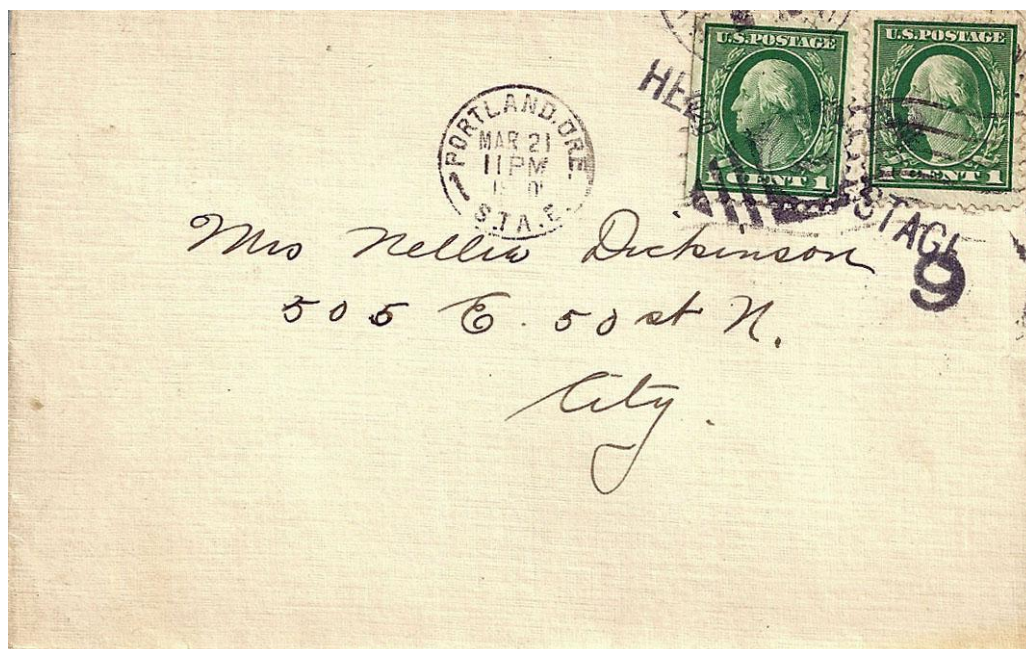 U.S.POSTAGE U.S.POSTAGE
CENT 1 CENT 1
PORTLAND.ORE.
MAR 21
11 PM
STA. E.
9
Mrs Nellie Dickinson
505 E. 50 st N.
City.